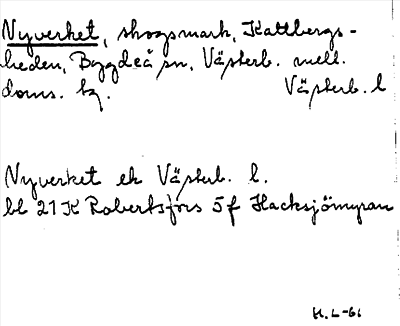 Nyverket, skogsmark, Kattbergs-
heden, Bygdeå sn, Västerb. mell.
doms. tg. Västerb. l
Nyverket ek Västerb. l.
bl 21K Robertsfors 5f Hacksjömyran
H.L-61